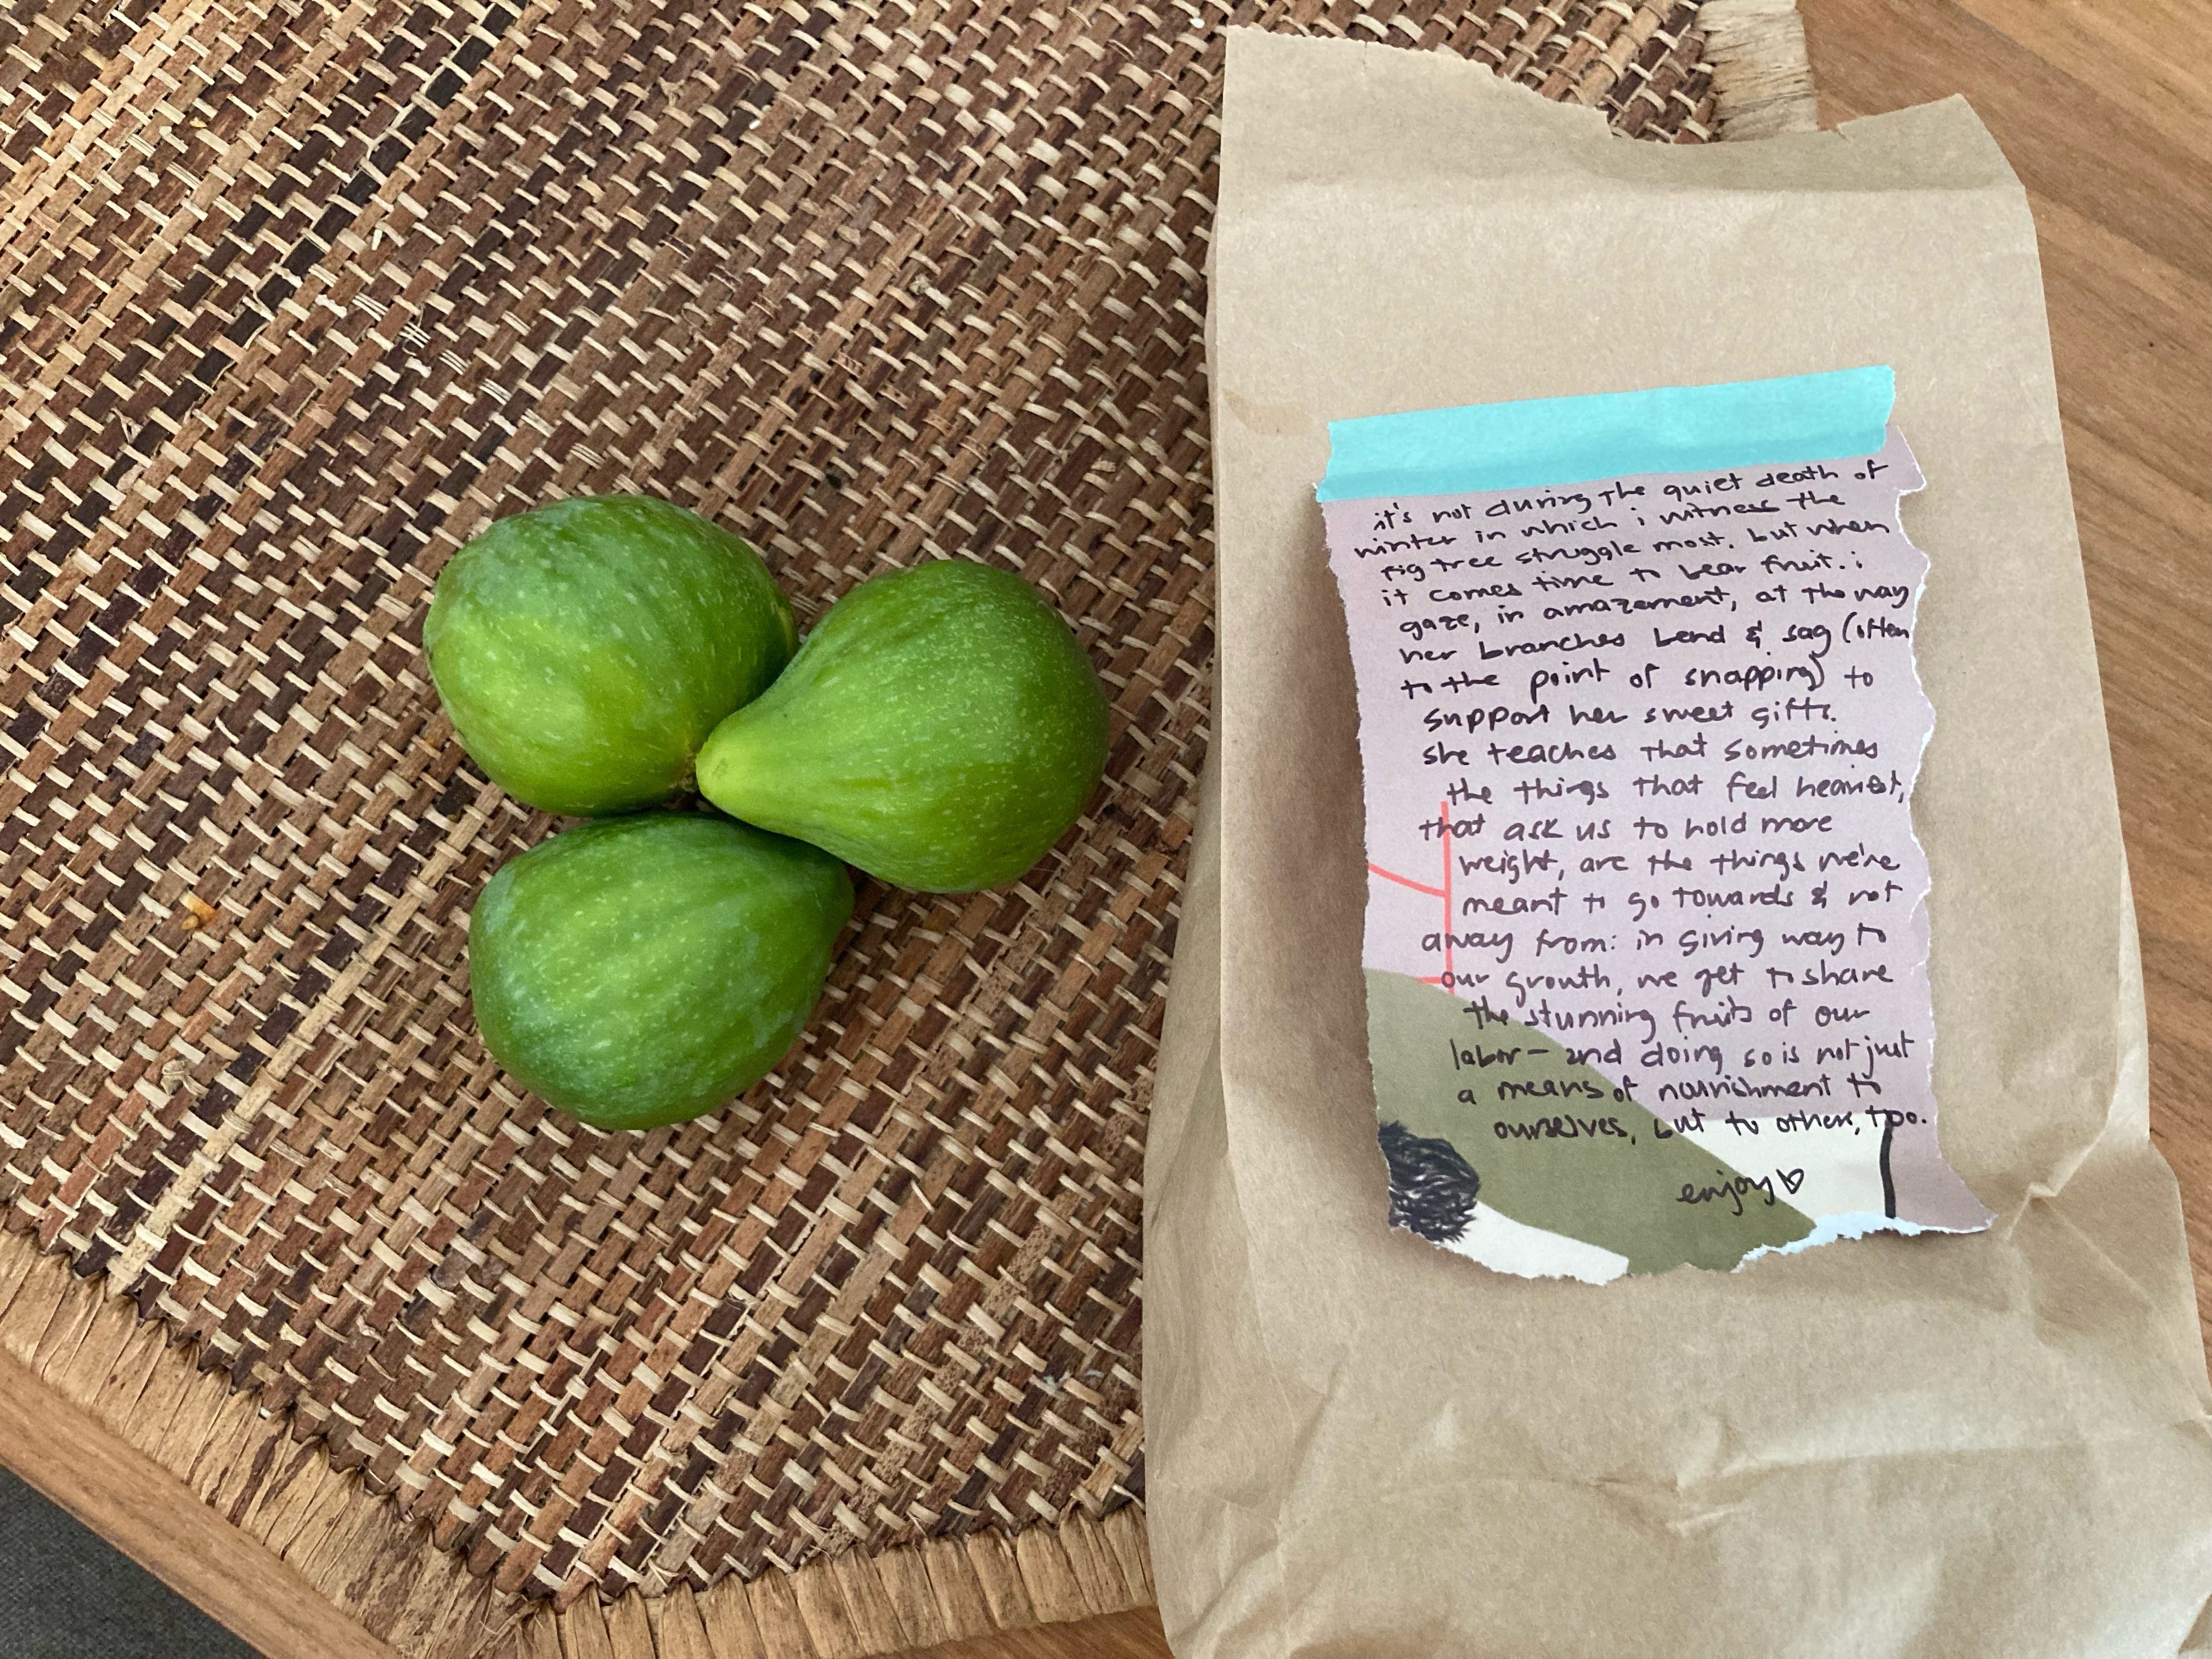 it's not during the quiet death of
winter in which i witness the
fig tree struggle most. but when
it comes time to bear fruit. i
gaze, in amazement, at the way
her branches bend & sag (often
to the point of snapping) to
support her sweet gifts.
she teaches that sometimes
the things that feel heaviest,
that ask us to hold more
weight, are the things we're
meant to go towards & not
away from: in giving way to
our growth, we get to share
the stunning fruits of our
labor – and doing so is not just
a means of nourishment to
ourselves, but to others, too.
enjoy ♡